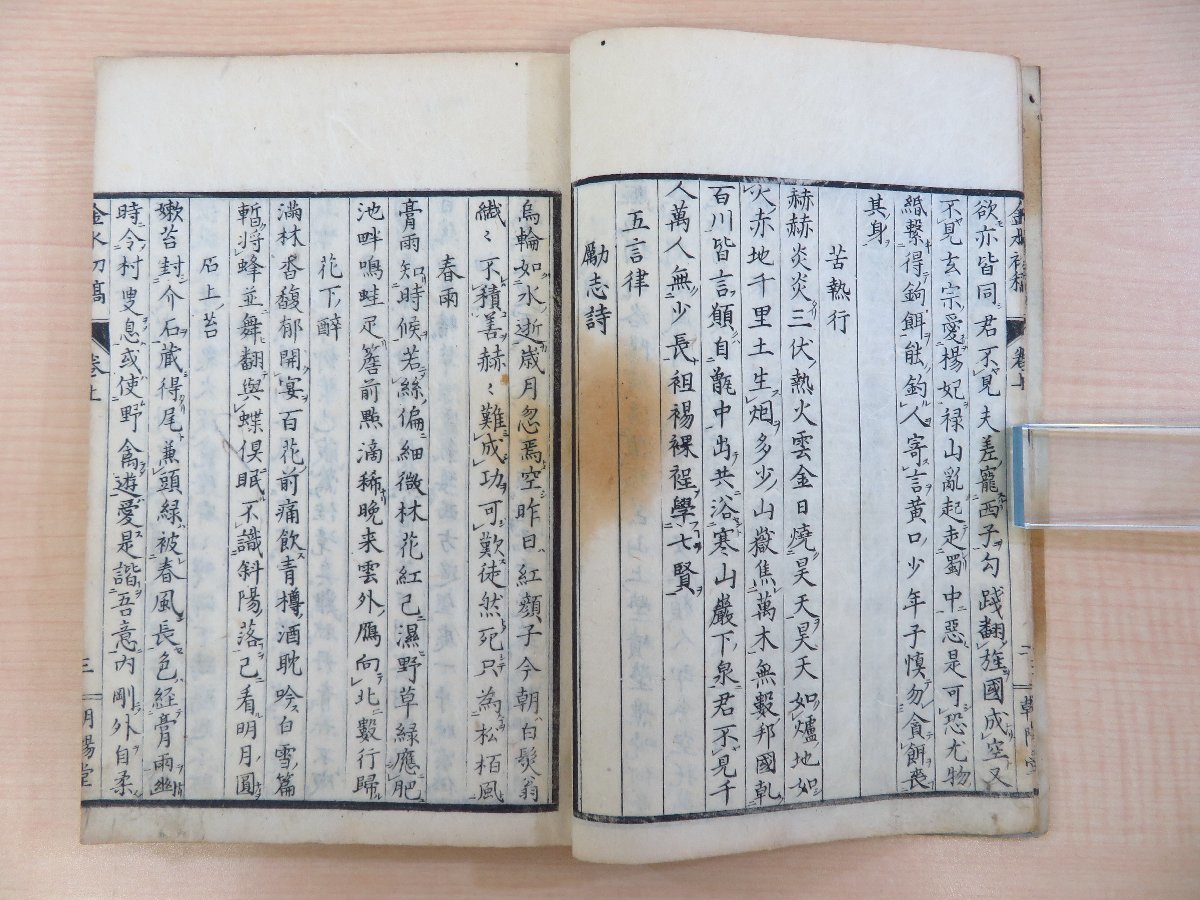 欲亦皆同君不見夫差寵西子勾踐翻旌國成空又
不見玄宗愛楊妃禄山亂起走蜀中惡是可恐尤物
緍繋得鉤餌能釣人寄言黄口少年子慎勿貪餌喪
其身
苦熱行
赫赫炎炎三伏熱火雲金日燒昊天昊天如爐地如
火赤地千里土生烟多少山嶽焦萬木無數邦國乾
百川皆言願自甑中出共浴寒山巖下泉君不見千
人萬人無少長袒裼裸裎學七賢
五言律
勵志詩
烏輪如水逝歳月忽焉空昨日紅顔子今朝白髮翁
繊〻不積善赫〻難成功可歎徒然死只為松栢風
春雨
膏雨知時候若絲偏細微林花紅已濕野草緑應肥
池畔鳴蛙足簷前點滴稀晩来雲外鴈向北數行歸
花下醉
滿林香馥郁開宴百花前痛飲青樽酒耽吟白雪篇
暫將蜂並舞翻與蝶倶眠不識斜陽落已看明月圓
石上苔
嫩苔封介石蔵得尾兼頭緑被春風長色経膏雨幽
時令村叟息或使野禽遊愛是諧吾意内剛外自柔
金水初稿 卷上 三 朝陽堂